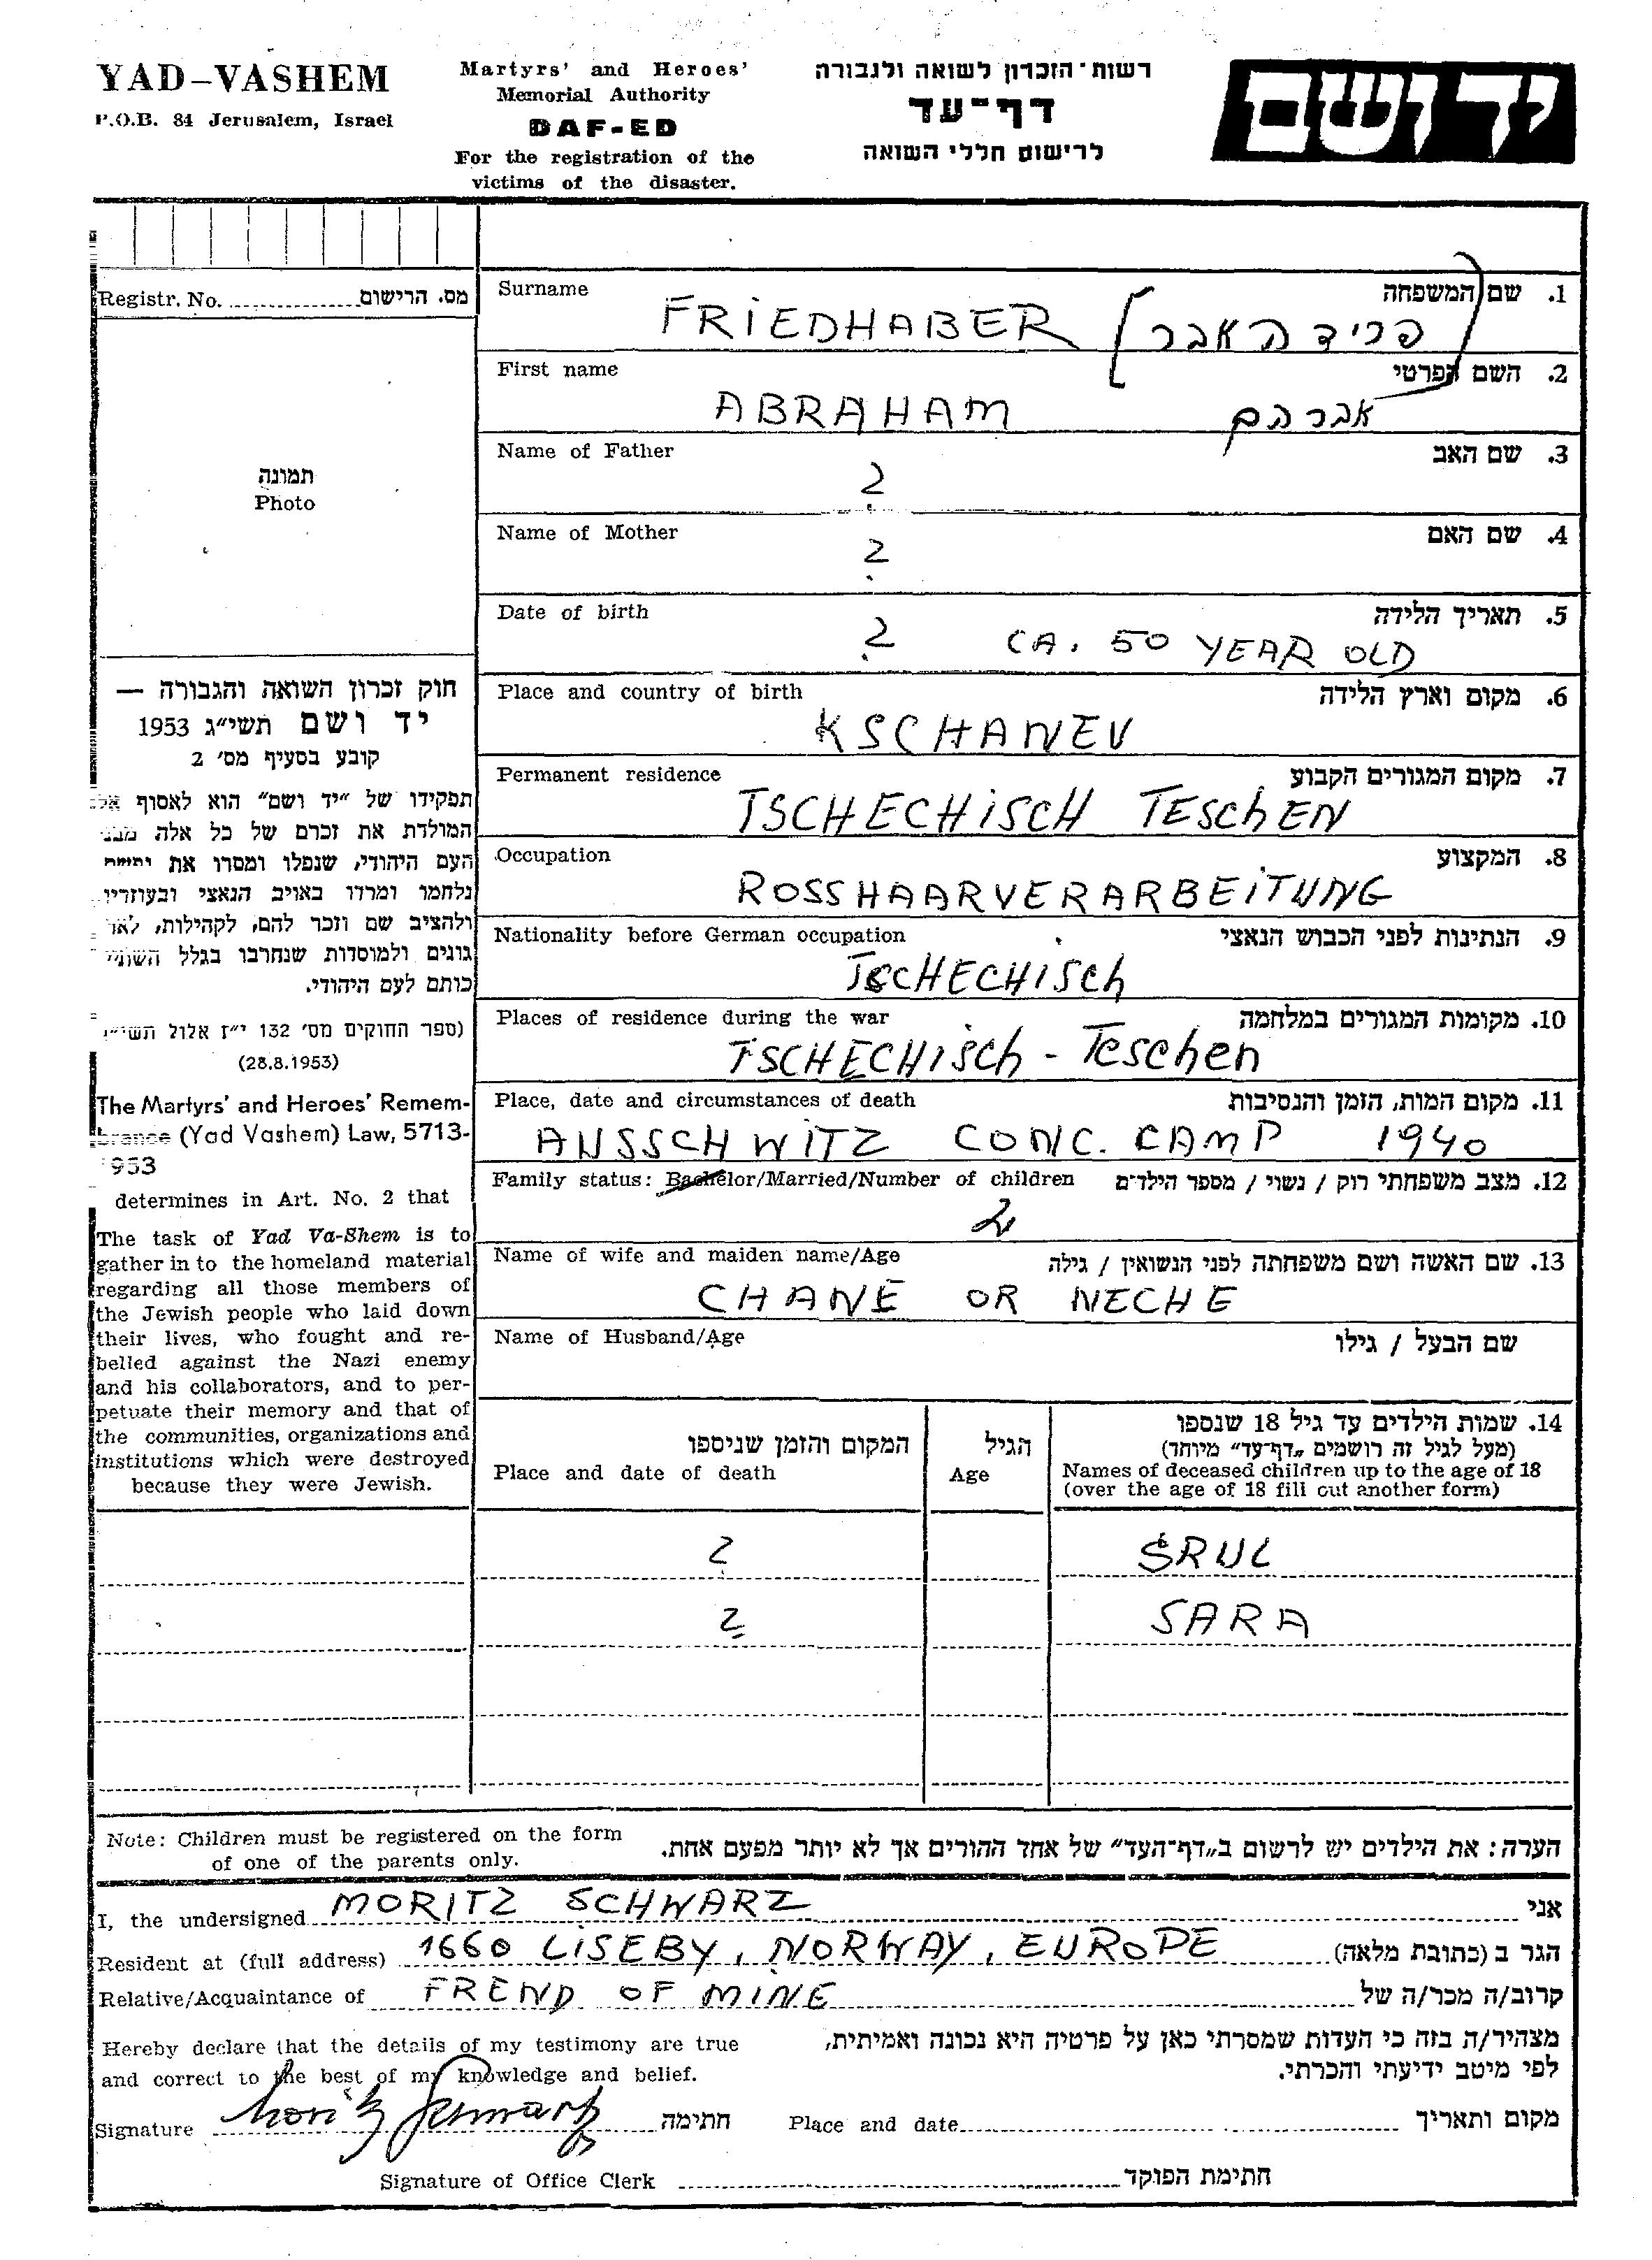 YAD-VASHEM
P.O.B. 84 Jerusalem, Israel
Martyrs' and Heroes'
Memorial Authority
DAF-ED
For the registration of the
victims of the disaster.
רשות-הזכרון לשואה ולגבורה
דף-עד
לרישום חללי השואה
יד ושם
Registr. No. מס. הרישום
תמונה
Photo
חוק זכרון השואה והגבורה —
יד ושם תשי״ג 1953
קובע בסעיף מס׳ 2
תפקידו של ״יד ושם״ הוא לאסוף אל
המולדת את זכרם של כל אלה מבני
העם היהודי, שנפלו ומסרו את נפשם
נלחמו ומרדו באויב הנאצי ובעוזריו
ולהציב שם וזכר להם, לקהילות, לאר
גונים ולמוסדות שנחרבו בגלל השתיי
כותם לעם היהודי.
(ספר החוקים מס׳ 132 י״ז אלול תשי״ג
(28.8.1953)
The Martyrs' and Heroes' Remem-
brance (Yad Vashem) Law, 5713-
1953
determines in Art. No. 2 that
The task of Yad Va-Shem is to
gather in to the homeland material
regarding all those members of
the Jewish people who laid down
their lives, who fought and re-
belled against the Nazi enemy
and his collaborators, and to per-
petuate their memory and that of
the communities, organizations and
institutions which were destroyed
because they were Jewish.
Surname 1. שם המשפחה
FRIEDHABER [פריד האבר
First name 2. השם הפרטי
ABRAHAM אברהם
Name of Father 3. שם האב
?
Name of Mother 4. שם האם
?
Date of birth 5. תאריך הלידה
? CA. 50 YEAR OLD
Place and country of birth 6. מקום וארץ הלידה
KSCHANEV
Permanent residence 7. מקום המגורים הקבוע
TSCHECHISCH TESCHEN
Occupation 8. המקצוע
ROSSHAARVERARBEITUNG
Nationality before German occupation 9. הנתינות לפני הכבוש הנאצי
TSCHECHISCH
Places of residence during the war 10. מקומות המגורים במלחמה
TSCHECHISCH - Teschen
Place, date and circumstances of death 11. מקום המות, הזמן והנסיבות
AUSSCHWITZ CONC. CAMP 1940
Family status: Bachelor/Married/Number of children 12. מצב משפחתי רוק / נשוי / מספר הילדים
2
Name of wife and maiden name/Age 13. שם האשה ושם משפחתה לפני הנשואין / גילה
CHANE OR NECHE
Name of Husband/Age שם הבעל / גילו
המקום והזמן שניספו
Place and date of death
הגיל
Age
14. שמות הילדים עד גיל 18 שנספו
(מעל לגיל זה רושמים „דף-עד״ מיוחד)
Names of deceased children up to the age of 18
(over the age of 18 fill out another form)
? SRUL
? SARA
Note: Children must be registered on the form
of one of the parents only.
הערה: את הילדים יש לרשום ב„דף-העד״ של אחד ההורים אך לא יותר מפעם אחת.
I, the undersigned MORITZ SCHWARZ אני
Resident at (full address) 1660 LISEBY, NORWAY, EUROPE הגר ב (כתובת מלאה)
Relative/Acquaintance of FREND OF MINE קרוב/ה מכר/ה של
Hereby declare that the details of my testimony are true
and correct to the best of my knowledge and belief.
מצהיר/ה בזה כי העדות שמסרתי כאן על פרטיה היא נכונה ואמיתית,
לפי מיטב ידיעתי והכרתי.
Signature Moritz Schwarz חתימה Place and date מקום ותאריך
Signature of Office Clerk חתימת הפוקד